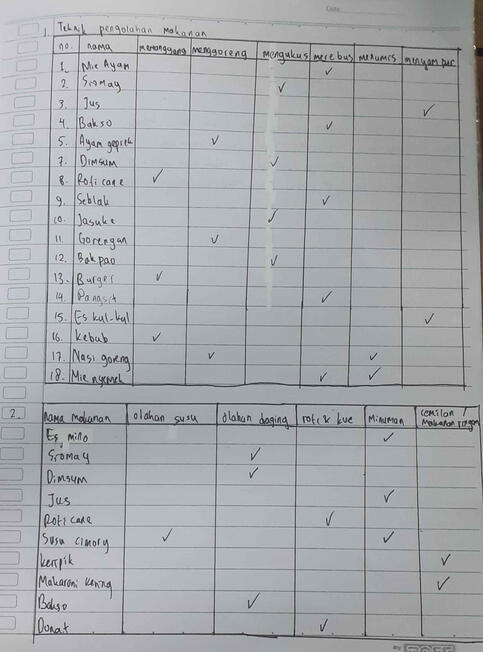 Date
1. Teknik pengolahan Makanan
no. nama memanggang menggoreng mengukus merebus menumis menyampur
1. Mie Ayam ✓
2. Sromay ✓
3. Jus ✓
4. Bakso ✓
5. Ayam geprek ✓
7. Dimsum ✓
8. Roti cane ✓
9. Seblak ✓
10. Jasuke ✓
11. Gorengan ✓
12. Bakpao ✓
13. Burger ✓
14. Pangsit ✓
15. Es kul-kul ✓
16. Kebab ✓
17. Nasi goreng ✓ ✓
18. Mie nyemek ✓ ✓
2. nama makanan olahan susu olahan daging roti & kue Minuman cemilan / Makanan ringan
Es milo ✓
Sromay ✓
Dimsum ✓
Jus ✓
Roti cane ✓
Susu cimory ✓ ✓
keripik ✓
Makaroni kering ✓
Bakso ✓
Donat ✓